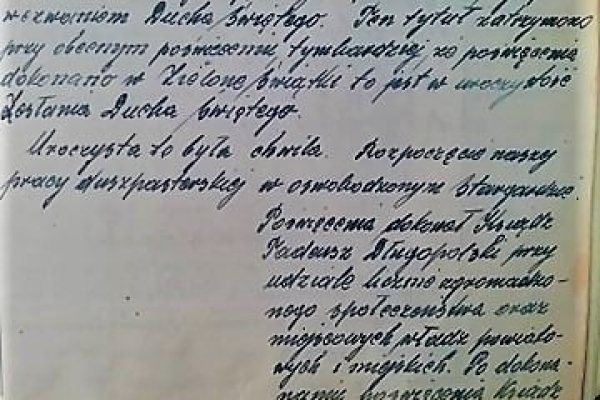 wezwaniem Ducha Świętego. Ten tytuł zatrzymano
przy obecnym poświęceniu tymbardziej, że poświęcenia
dokonano w Zielone Świątki to jest w uroczystość
Zesłania Ducha Świętego.
Uroczysta to była chwila. Rozpoczęcie naszej
pracy duszpasterskiej w oswobodzonym Stargardzie.
Poświęcenia dokonał Ksiądz
Tadeusz Długopolski przy
udziale licznie zgromadzo-
nego społeczeństwa oraz
miejscowych władz powiato-
wych i miejskich. Po dokona-
naniu poświęcenia Ksiądz